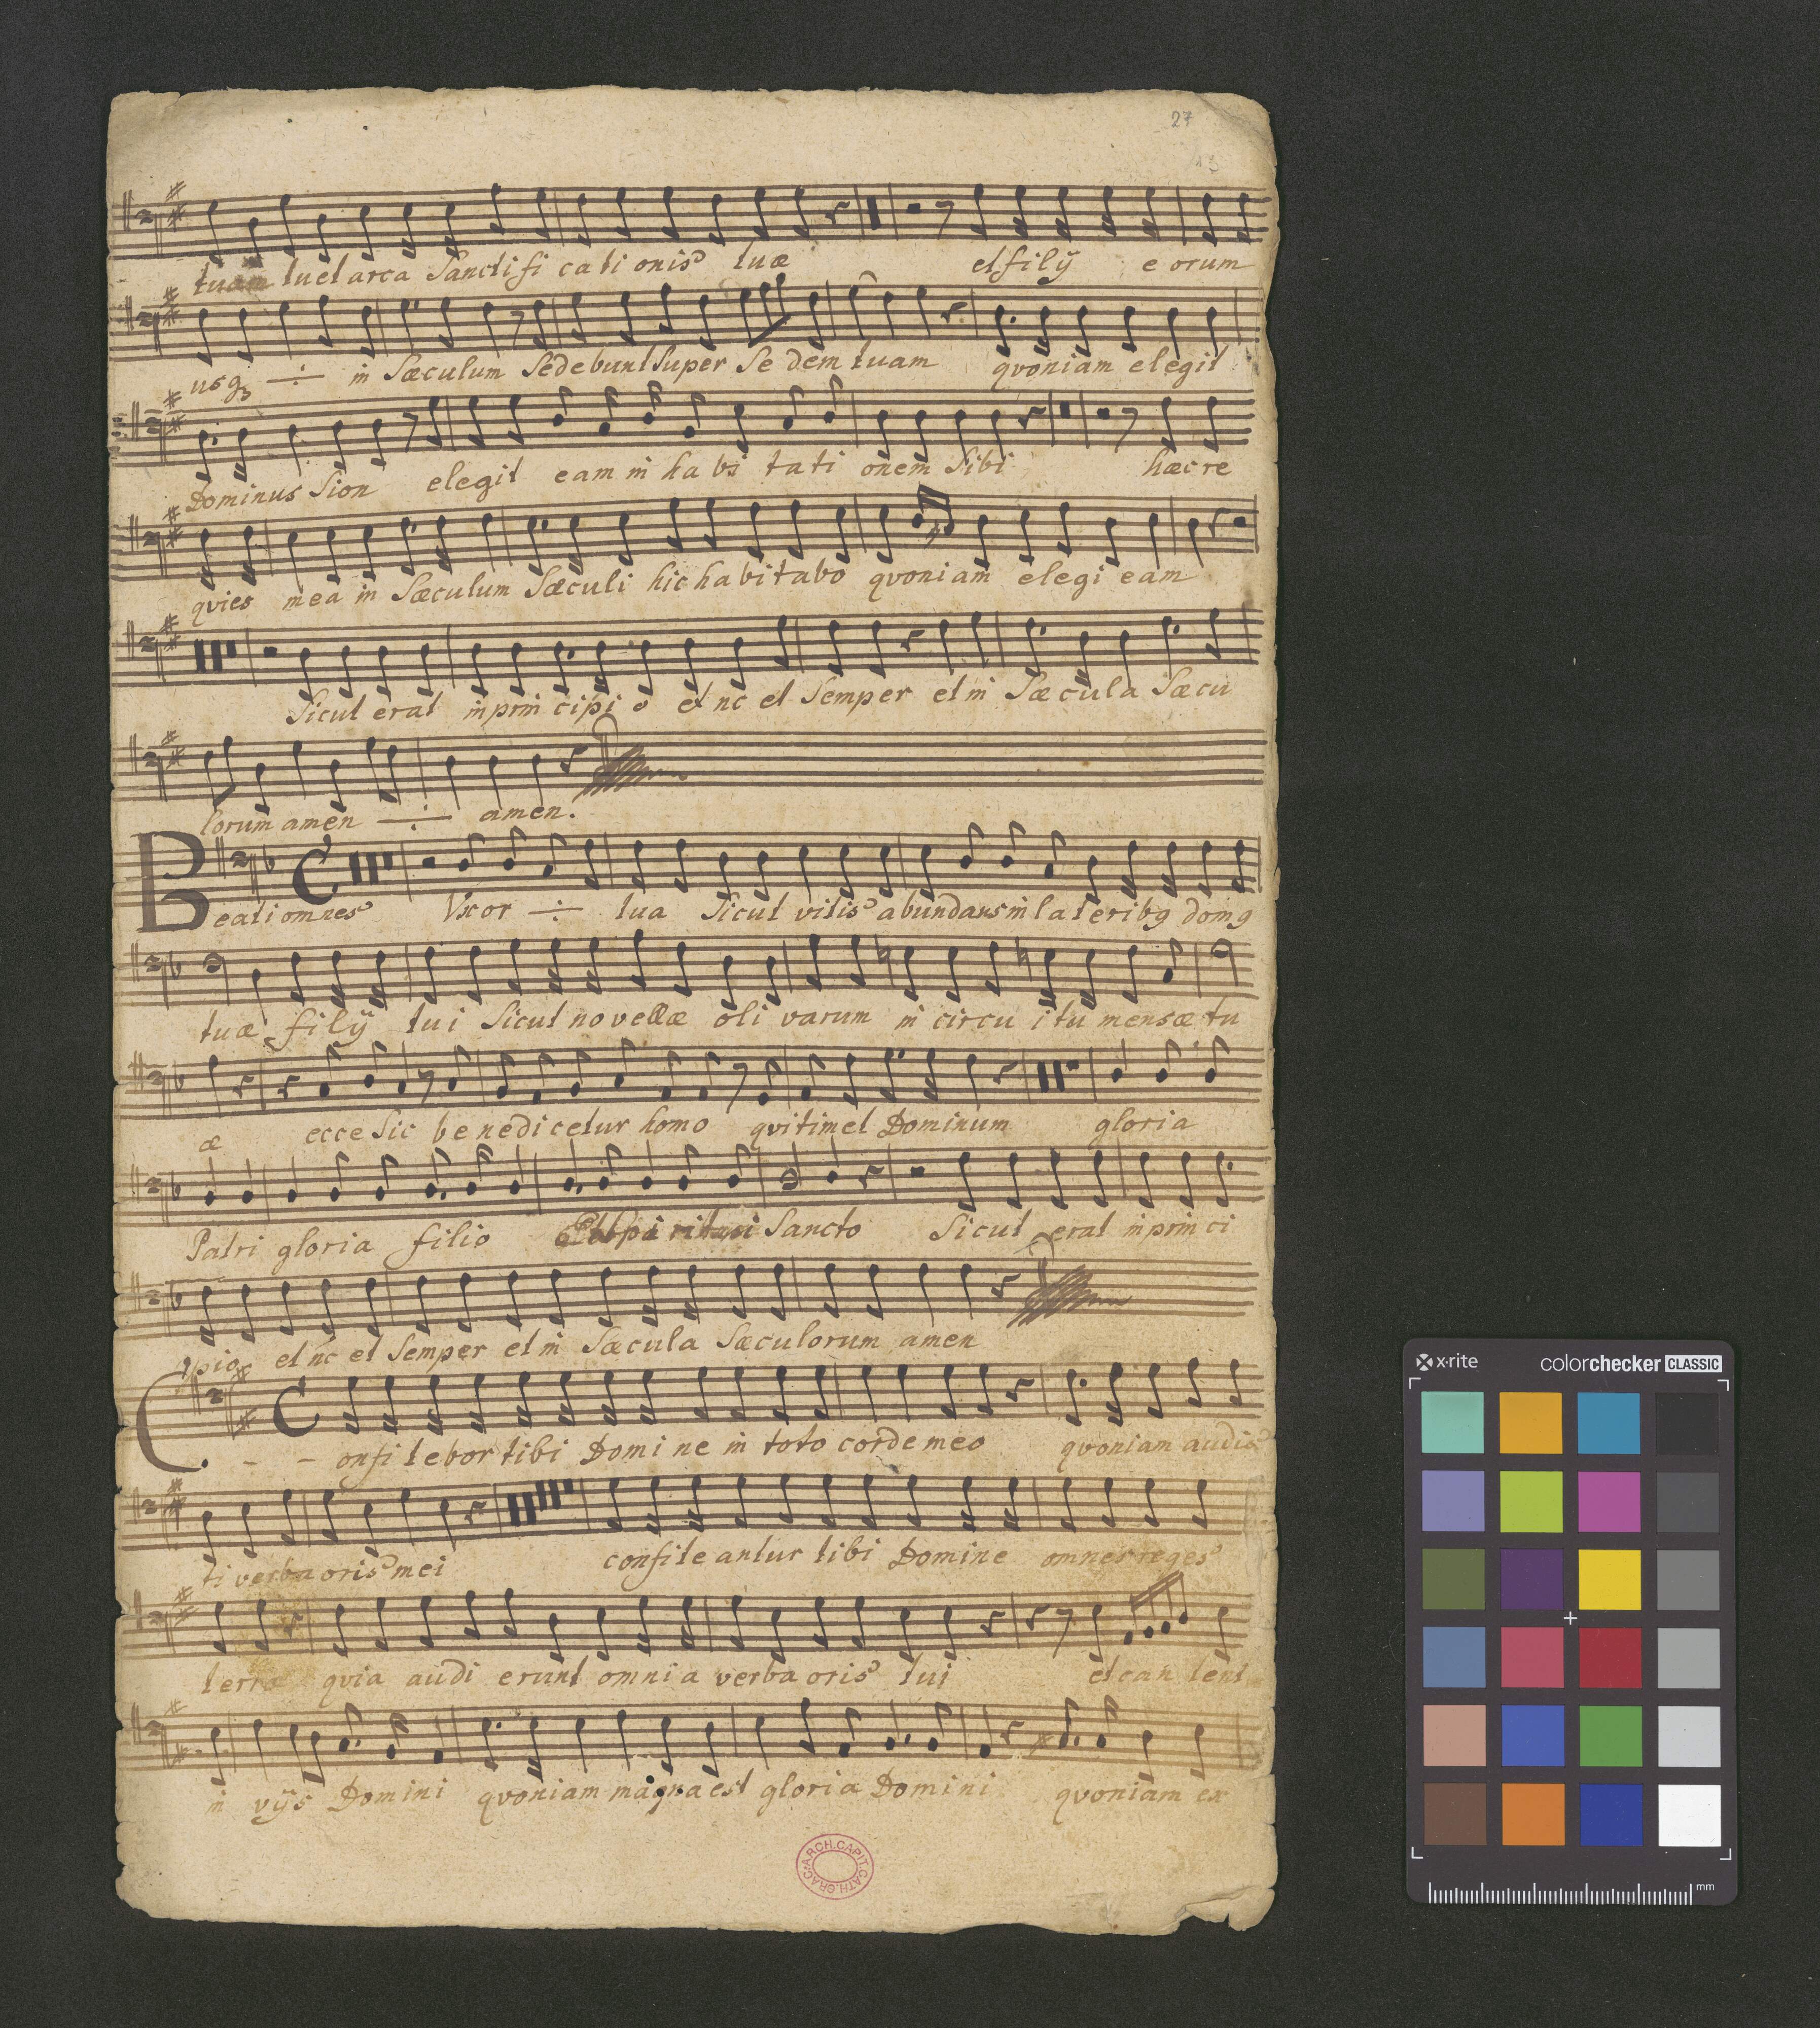 27
13
tuam tu et arca Sanctifi cati onis tuæ et filÿ e orum
usq3 ÷ in Sæculum Sedebunt Super Se dem tuam qvoniam elegit
Dominus Sion elegit eam in ha bi tati onem Sibi hæc re
qvies mea in Sæculum Sæculi hic habitabo qvoniam elegi eam
Sicut erat in prin cipi o et nc et Semper et in Sæcula Sæcu
lorum amen ÷ amen.
Beati omnes Vxor ÷ tua Sicut vitis abundans in lateribg domg
tuæ filÿ tui Sicut novellæ oli varum in circu itu mensæ tu
æ ecce Sic benedicetur homo qvi timet Dominum gloria
Patri gloria filio Et Spi ritui Sancto Sicut erat in prin ci
pio et nc et Semper et in Sæcula Sæculorum amen
C. - - onfitebor tibi Domine in toto corde meo qvoniam audis
ti verba oris mei confiteantur tibi Domine omnes reges
terræ qvia audi erunt omnia verba oris tui et can tent
in vÿs Domini qvoniam magna est gloria Domini qvoniam ex
ARCH.CAPIT.CATH.GRAC.
x·rite colorchecker CLASSIC
mm